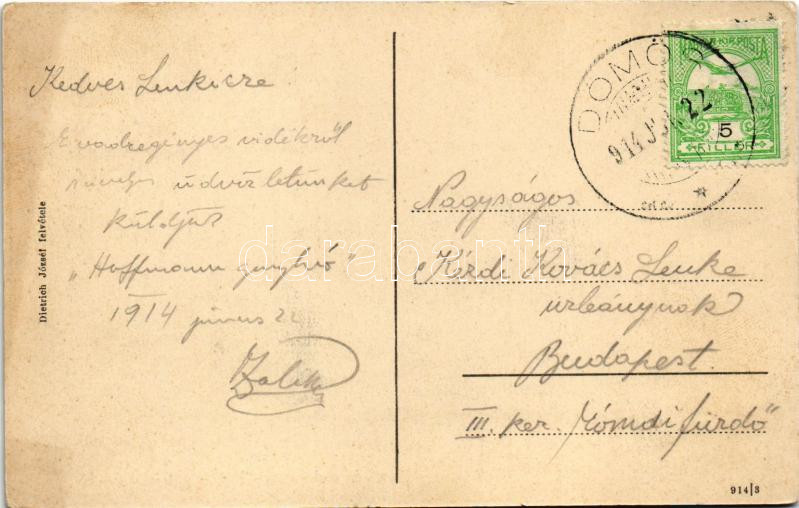 Kedves Lenkicze!
E vadregényes vidékről
szives üdvözletünket
küldjük
„Hoffmann gunyhó"
1914 junius 22
Dietrich József felvétele
DOMÓ
914 JUN. 22
MAGYAR KIR. POSTA
5
FILLÉR
Nagyságos
Kérdi Kovács Lenke
urleánynak
Budapest.
III. ker. Rómdifürdő"
914|3
darabanth